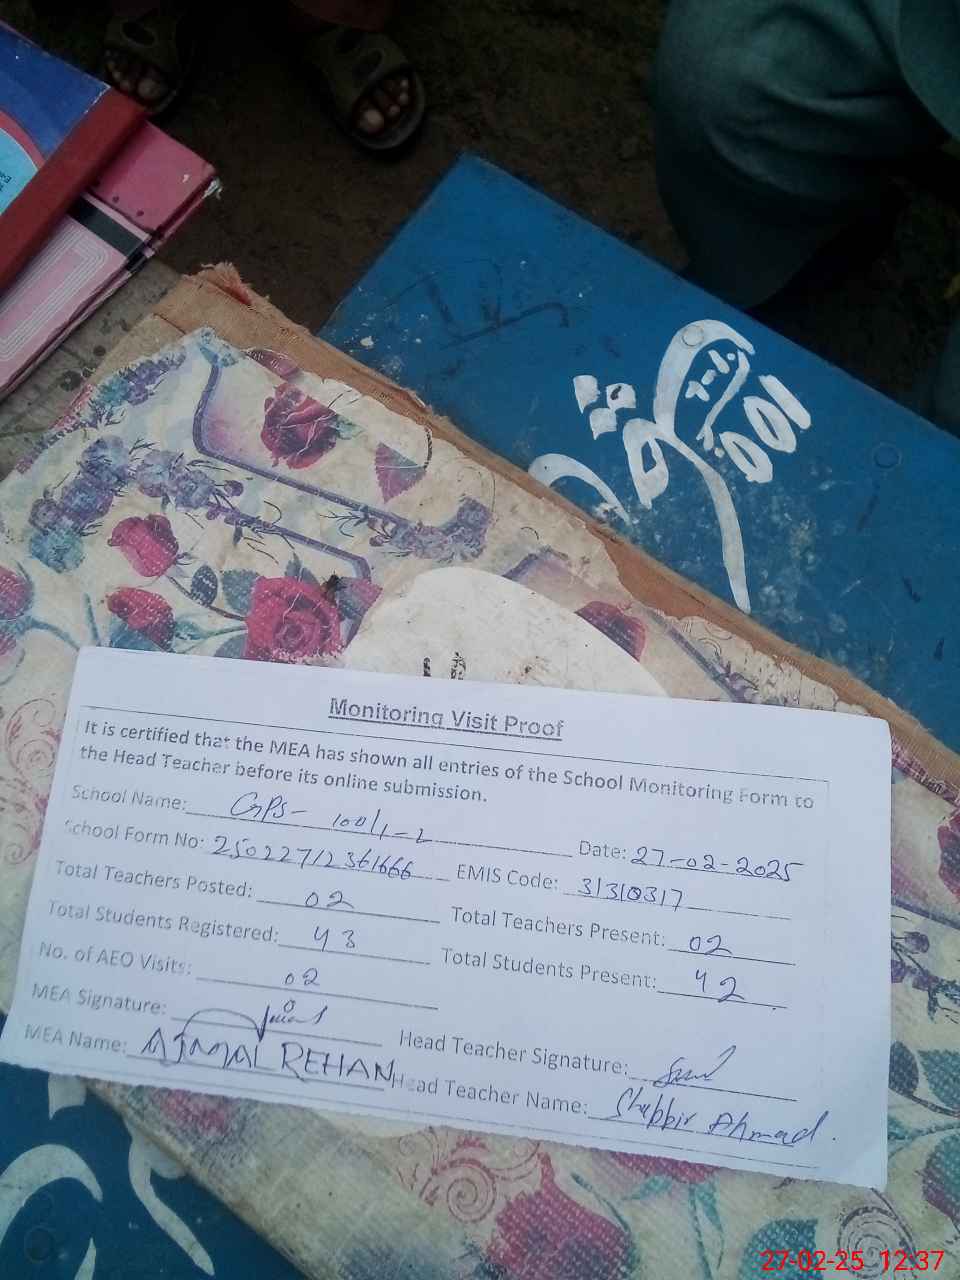 Monitoring Visit Proof
It is certified that the MEA has shown all entries of the School Monitoring Form to
the Head Teacher before its online submission.
School Name: GPS- 100/1-L Date: 27-02-2025
School Form No: 25022712361666 EMIS Code: 31310317
Total Teachers Posted: 02 Total Teachers Present: 02
Total Students Registered: 43 Total Students Present: 42
No. of AEO Visits: 02
MEA Signature: Head Teacher Signature:
MEA Name: AJMAL REHAN Head Teacher Name: Shabbir Ahmad.
27-02-25 12:37